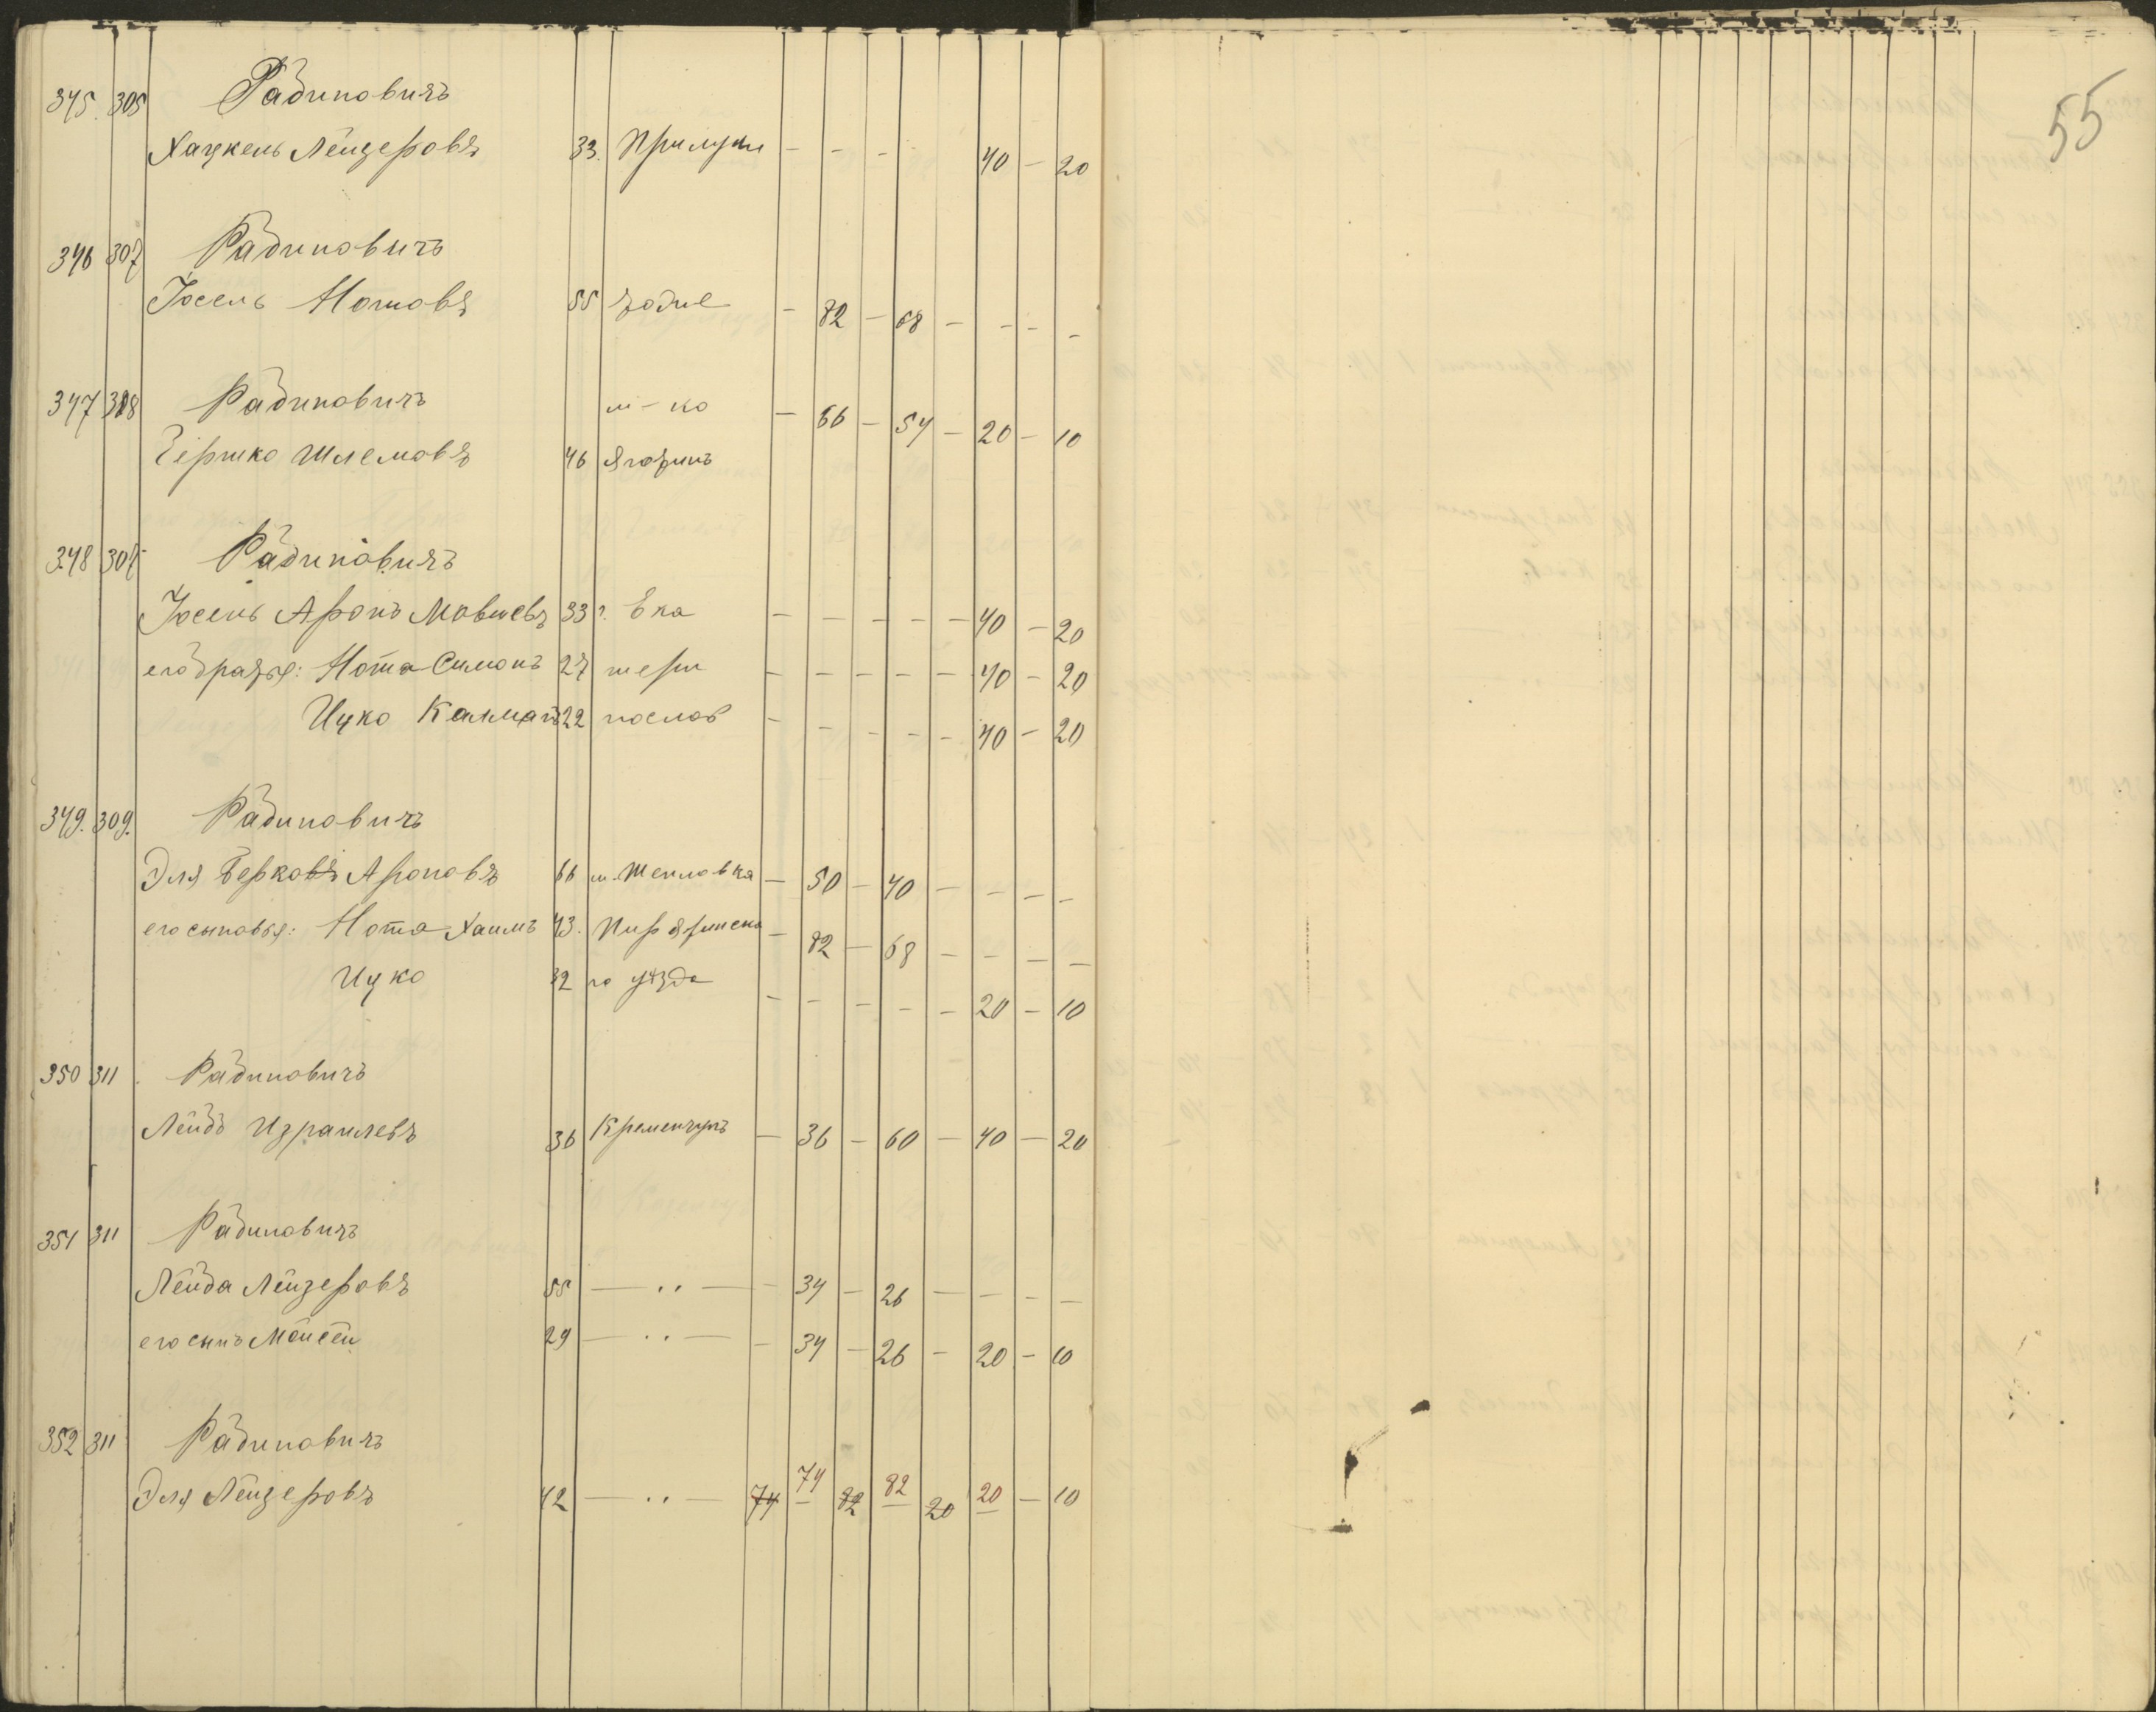 345. 305 Рабиновичъ
Хацкель Лейзеровъ 33. Прилуки — — — 40 — 20
346 307 Рабиновичъ
Іосель Нотовъ 55 — 82 — 68 — — — —
347 308 Рабиновичъ м-ко — 66 — 54 — 20 — 10
Гершко Шлемовъ 46 Яготинъ
348 307 Рабиновичъ
Іосель Аронъ Мовшевъ 33 г. Ека — — — — — 40 — 20
его братья: Нота Симонъ 27 тери — — — — — 40 — 20
Ицко Калманъ 22 нослав — — — — — 40 — 20
349. 309. Рабиновичъ
Эля Берковъ Ароновъ 66 — 50 — 40 — — — —
его сыновья: Нота Хаимъ 43. Пирятинска — 82 — 68 — — — —
Ицко 32 го уѣзда — — — — — 20 — 10
350 311 Рабиновичъ
Лейбъ Израилевъ 36 Кременчугъ — 36 — 60 — 40 — 20
351 311 Рабиновичъ
Лейба Лейзеровъ 55 — ·· — — 34 — 26 — — — —
его сынъ Мойсей 29 — ·· — — 34 — 26 — 20 — 10
352 311 Рабиновичъ
Эля Лейзеровъ 42 — ·· — 74 74 82 82 20 20 — 10
55